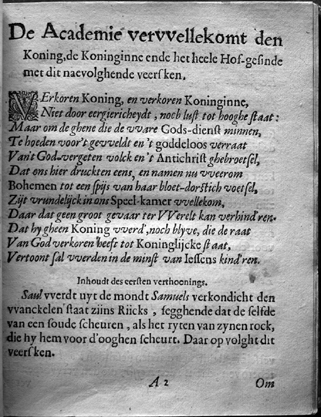 De Academie vervvellekomt den
Koning, de Koninginne ende het heele Hof-gesinde
met dit naevolghende veersken.
VErkoren Koning, en verkoren Koninginne,
Niet door eergiericheydt, noch lust tot hooghe staat:
Maar om de ghene die de vvare Gods-dienst minnen,
Te hoeden voor't gevveldt en 't goddeloos verraat
Van't God-vergeten volck en't Antichrist ghebroetsel,
Dat ons hier druckten eens, en namen nu vveerom
Bohemen tot een spijs van haar bloet-dorstich voetsel,
Zijt vrundelijck in ons Speel-kamer vvellekom,
Daar dat geen groot gevaar ter VVerelt kan verhind'ren.
Dat hy gheen Koning vverd', noch blyve, die de raat
Van God verkoren heeft tot Koninglijcke staat,
Vertoont sal vverden in de minst van Iessens kind'ren.
Inhoudt des eersten verthoonings.
Saul vverdt uyt de mondt Samuels verkondicht den
vvanckelen staat zijns Riicks, segghende dat de selfde
van een soude scheuren, als het ryten van zynen rock,
die hy hem voor d'ooghen scheurt. Daar op volght dit
veersken.
A 2
Om